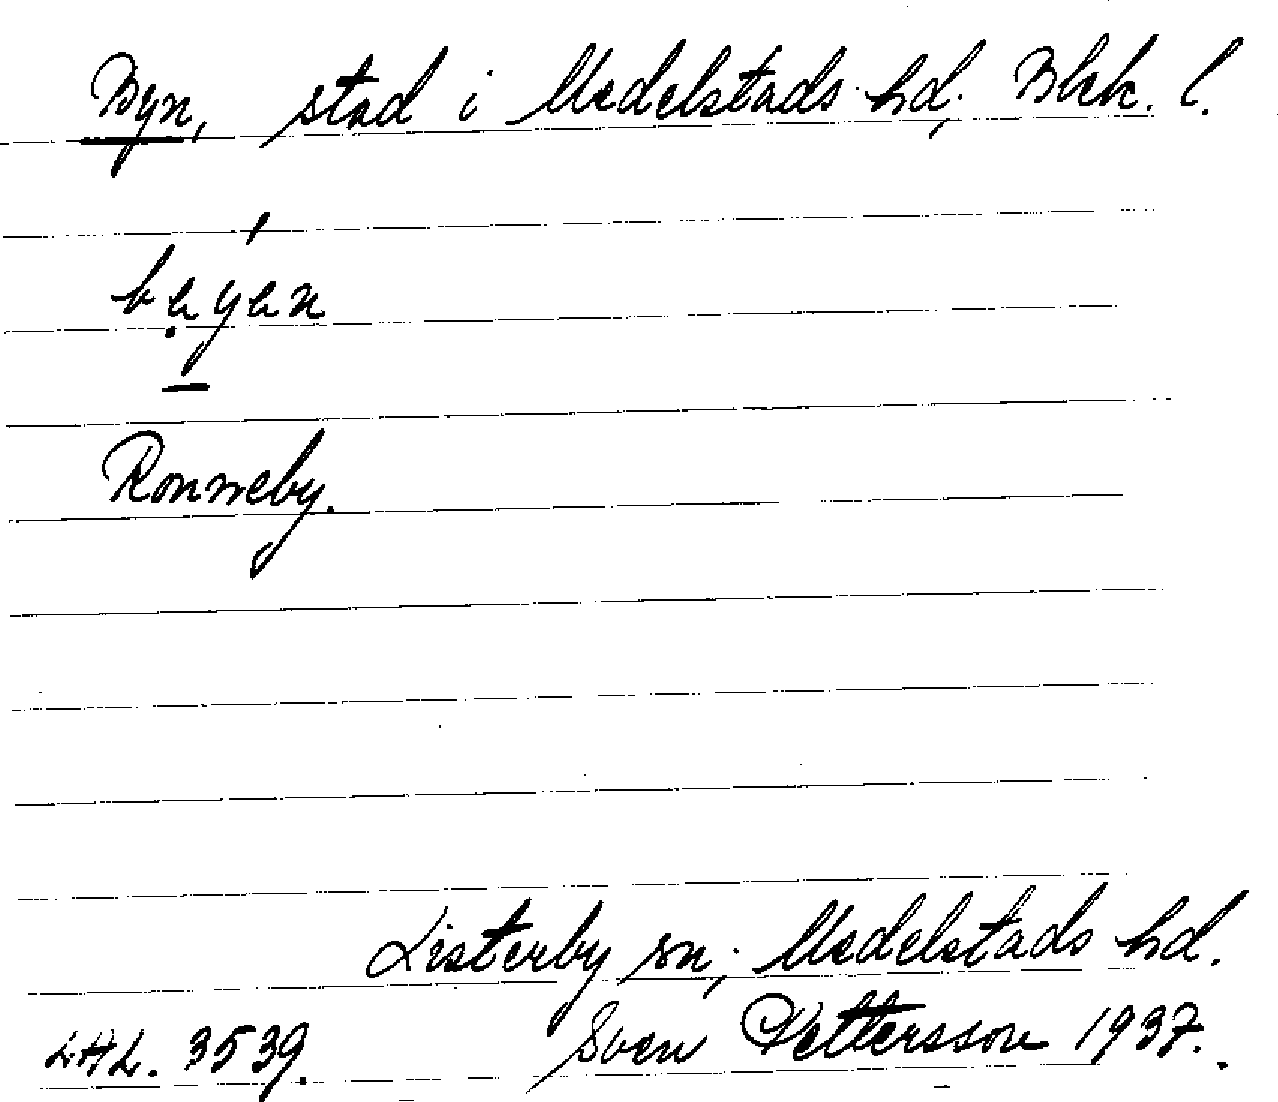 Byn, stad i Medelstads hd, Blek. l.
bẹyen
Ronneby.
Listerby sn, Medelstads hd.
LHL. 3539. Sven Pettersson 1937.